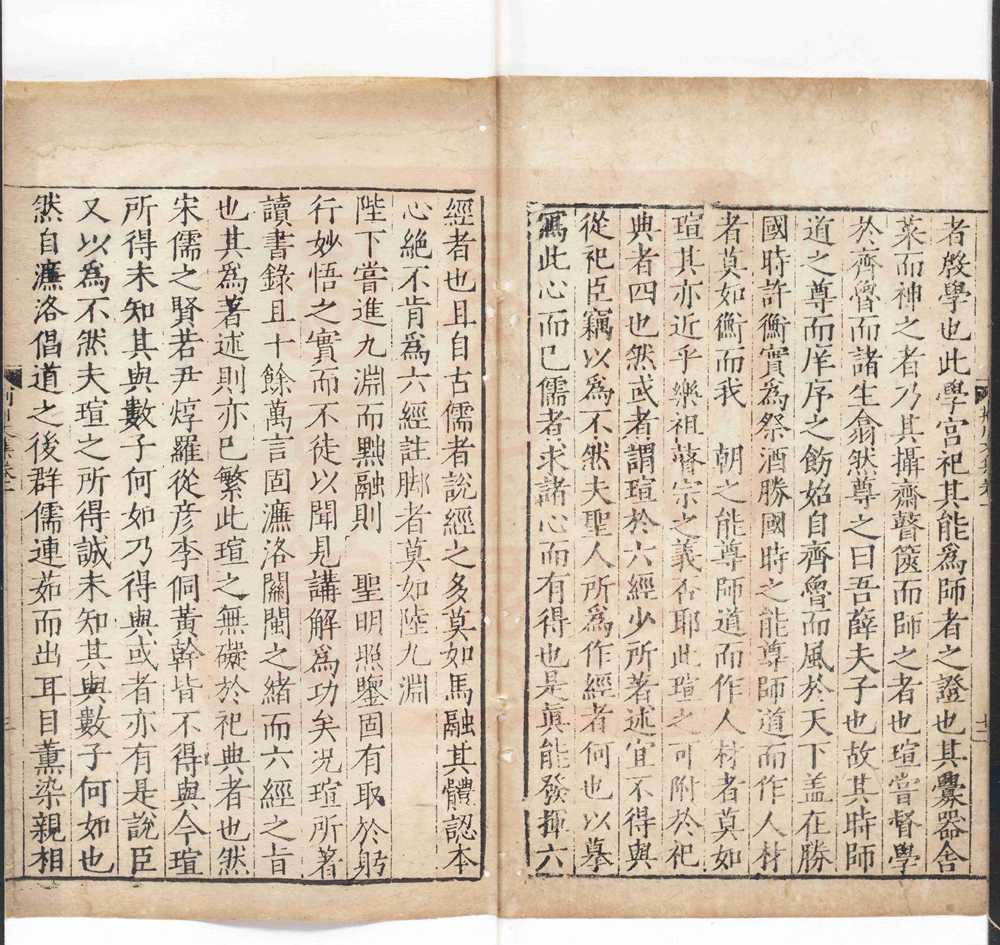 者殷學也此學宮祀其能為師者之證也其釁器舍
菜而神之者乃其攝齋瞽篋而師之者也瑄嘗督學
於齊魯而諸生翕然尊之曰吾薛夫子也故其時師
道之尊而庠序之飭始自齊魯而風於天下盖在勝
國時許衡實為祭酒勝國時之能尊師道而作人材
者莫如衡而我 朝之能尊師道而作人材者莫如
瑄其亦近乎樂祖瞽宗之義否耶此瑄之可附於祀
典者四也然或者謂瑄於六經少所著述宜不得與
從祀臣竊以為不然夫聖人所為作經者何也以摹
寫此心而已儒者求諸心而有得也是真能發揮六
經者也且自古儒者說經之多莫如馬融其體認本
心絕不肯為六經註脚者莫如陸九淵
陛下嘗進九淵而黜融則 聖明照鑒固有取於躬
行妙悟之實而不徒以聞見講解為功矣况瑄所著
讀書錄且十餘萬言固濂洛關閩之緒而六經之旨
也其為著述則亦已繁此瑄之無礙於祀典者也然
宋儒之賢若尹焞羅從彥李侗黃幹皆不得與今瑄
所得未知其與數子何如乃得與或者亦有是說臣
又以為不然夫瑄之所得誠未知其與數子何如也
然自濂洛倡道之後群儒連茹而出耳目薰染親相